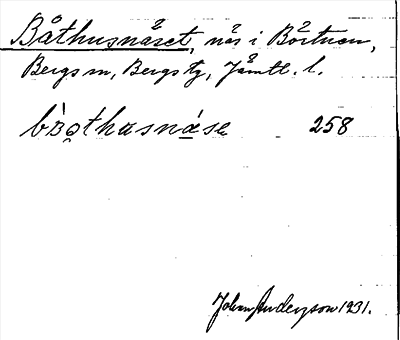 Båthusnäset, näs i Börtnen,
Bergs sn, Bergs tg, Jämtl. l.
bòo̯thusnǽsе 258
Johan Anderzson 1931.